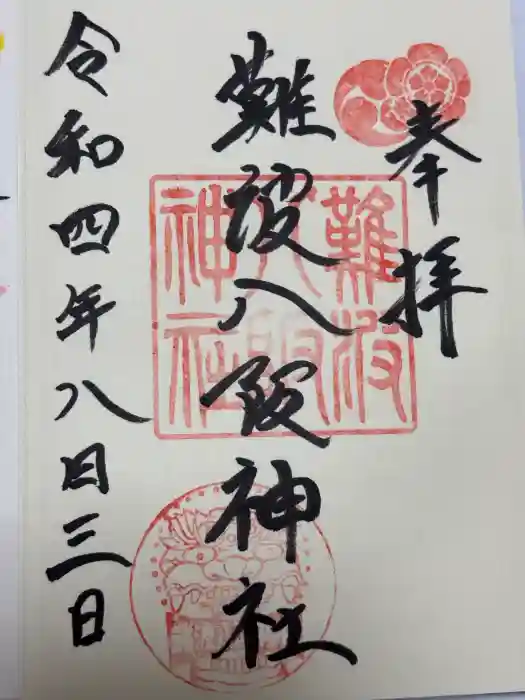 奉拝
難波八阪神社
令和四年八月三日
難波八阪神社